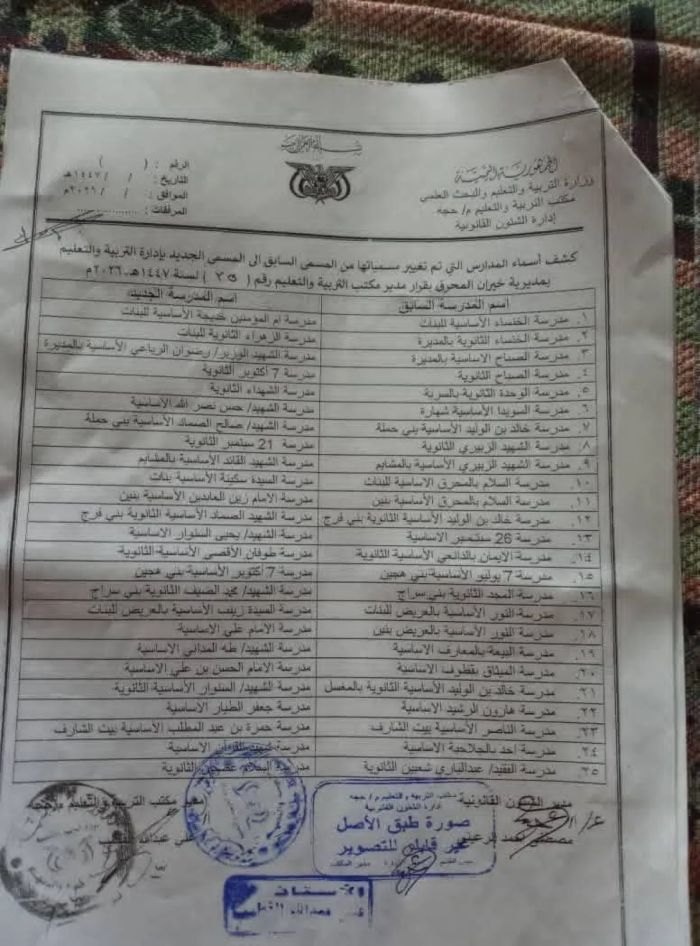 الجمهورية اليمنية
وزارة التربية والتعليم والبحث العلمي
مكتب التربية والتعليم م/ حجه
إدارة الشئون القانونية
الرقم : ( )
التاريخ : / / ١٤٤٧هـ
الموافق : / / ٢٠٢٦م
المرفقات : ..................
كشف أسماء المدارس التي تم تغيير مسمياتها من المسمى السابق الى المسمى الجديد بإدارة التربية والتعليم
بمديرية خيران المحرق بقرار مدير مكتب التربية والتعليم رقم ( ) لسنة ١٤٤٧هـ-٢٠٢٦م
اسم المدرسة السابق اسم المدرسة الجديد
١. مدرسة الخنساء الأساسية للبنات مدرسة ام المؤمنين خديجة الأساسية للبنات
٢. مدرسة الخنساء الثانوية بالمديرة مدرسة الزهراء الثانوية للبنات
٣. مدرسة الصباح الاساسية بالمديرة مدرسة الشهيد الوزير/ رضوان الرباعي الأساسية بالمديرة
٤. مدرسة الصباح الثانوية مدرسة 7 أكتوبر الثانوية
٥. مدرسة الوحدة الثانوية بالسرية مدرسة الشهداء الثانوية
٦. مدرسة السويدا الأساسية شهارة مدرسة الشهيد/ حسن نصر الله الأساسية
٧. مدرسة خالد بن الوليد الأساسية بني حملة مدرسة الشهيد/ صالح الصماد الأساسية بني حملة
٨. مدرسة الشهيد الزبيري الثانوية مدرسة 21 سبتمبر الثانوية
٩. مدرسة الشهيد الزبيري الأساسية بالمشايم مدرسة الشهيد القائد الأساسية بالمشايم
١٠. مدرسة السلام بالمحرق الاساسية للبنات مدرسة السيدة سكينة الأساسية بنات
١١. مدرسة السلام بالمحرق الأساسية بنين مدرسة الامام زين العابدين الأساسية بنين
١٢. مدرسة خالد بن الوليد الأساسية الثانوية بني فرج مدرسة الشهيد الصماد الأساسية الثانوية بني فرج
١٣. مدرسة 26 سبتمبر الاساسية مدرسة الشهيد/ يحيى السنوار الاساسية
١٤. مدرسة الإيمان بالدانعي الأساسية الثانوية مدرسة طوفان الأقصى الأساسية-الثانوية
١٥. مدرسة 7 يوليو الأساسية-بني هجين مدرسة 7 أكتوبر الأساسية-بني هجين
١٦. مدرسة المجد الثانوية بني سراج مدرسة الشهيد/ محمد الضيف الثانوية بني سراج
١٧. مدرسة النور الأساسية بالعريض للبنات مدرسة السيدة زينب الأساسية بالعريض للبنات
١٨. مدرسة النور الأساسية بالعريض بنين مدرسة الامام علي الاساسية
١٩. مدرسة البيعة بالمعارف الاساسية مدرسة الشهيد/ طه المداني الاساسية
٢٠. مدرسة الميثاق بقطوف الاساسية مدرسة الامام الحسن بن علي الاساسية
٢١. مدرسة خالد بن الوليد الأساسية الثانوية بالمغسل مدرسة الشهيد/ السنوار الأساسية الثانوية
٢٢. مدرسة هارون الرشيد الاساسية مدرسة جعفر الطيار الأساسية
٢٣. مدرسة الناصر الأساسية بيت الشارف مدرسة حمزة بن عبد المطلب الأساسية بيت الشارف
٢٤. مدرسة احد بالجلاحية الأساسية مدرسة شهيد القرآن الاساسية
٢٥. مدرسة الفقيد/ عبدالباري شعبين الثانوية مدرسة الثانوية
مدير الشئون القانونية
مدير مكتب التربية والتعليم م/حجه
مكتب التربية والتعليم م/ حجه
إدارة الشئون القانونية
صورة طبق الأصل
غير قابلة للتصوير